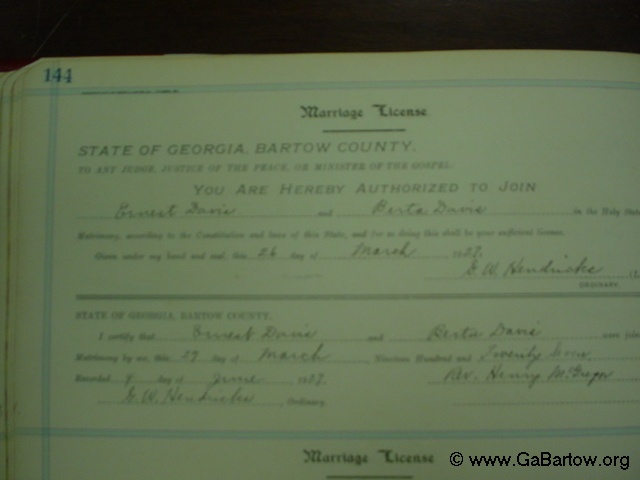 144
Marriage License
STATE OF GEORGIA, BARTOW COUNTY.
TO ANY JUDGE, JUSTICE OF THE PEACE, OR MINISTER OF THE GOSPEL:
YOU ARE HEREBY AUTHORIZED TO JOIN
Ernest Davis and Berta Davis in the Holy State
Matrimony, according to the Constitution and laws of this State, and for so doing this shall be your sufficient license.
Given under my hand and seal, this 26 day of March 1927.
G. W. Hendricks (L
ORDINARY.
STATE OF GEORGIA, BARTOW COUNTY.
I certify that Ernest Davis and Berta Davis were join
Matrimony by me, this 27 day of March, Nineteen Hundred and Twenty Seven
Recorded 9 day of June 1927. Rev. Henry McGregor
G. W. Hendricks Ordinary.
Marriage License
© www.GaBartow.org